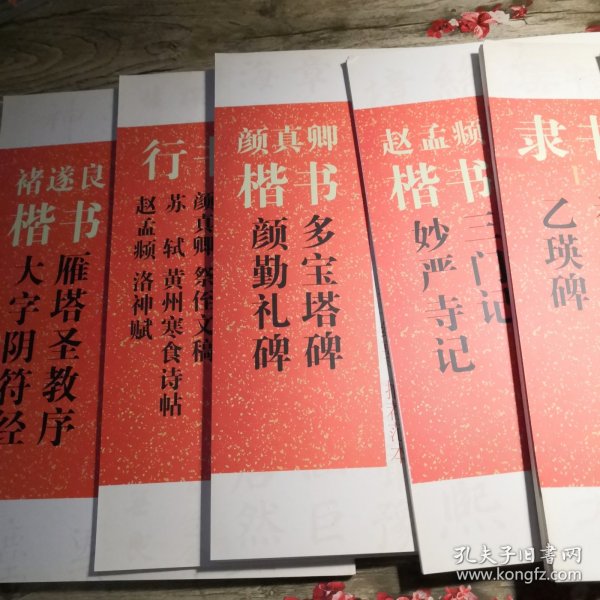 褚遂良
楷书
雁塔圣教序
大字阴符经
行
颜真卿 祭侄文稿
苏轼 黄州寒食诗帖
赵孟頫 洛神赋
颜真卿
楷书
多宝塔碑
颜勤礼碑
赵孟頫
楷书
三门记
妙严寺记
隶书
乙瑛碑
孔夫子旧书网
www.kongfz.com